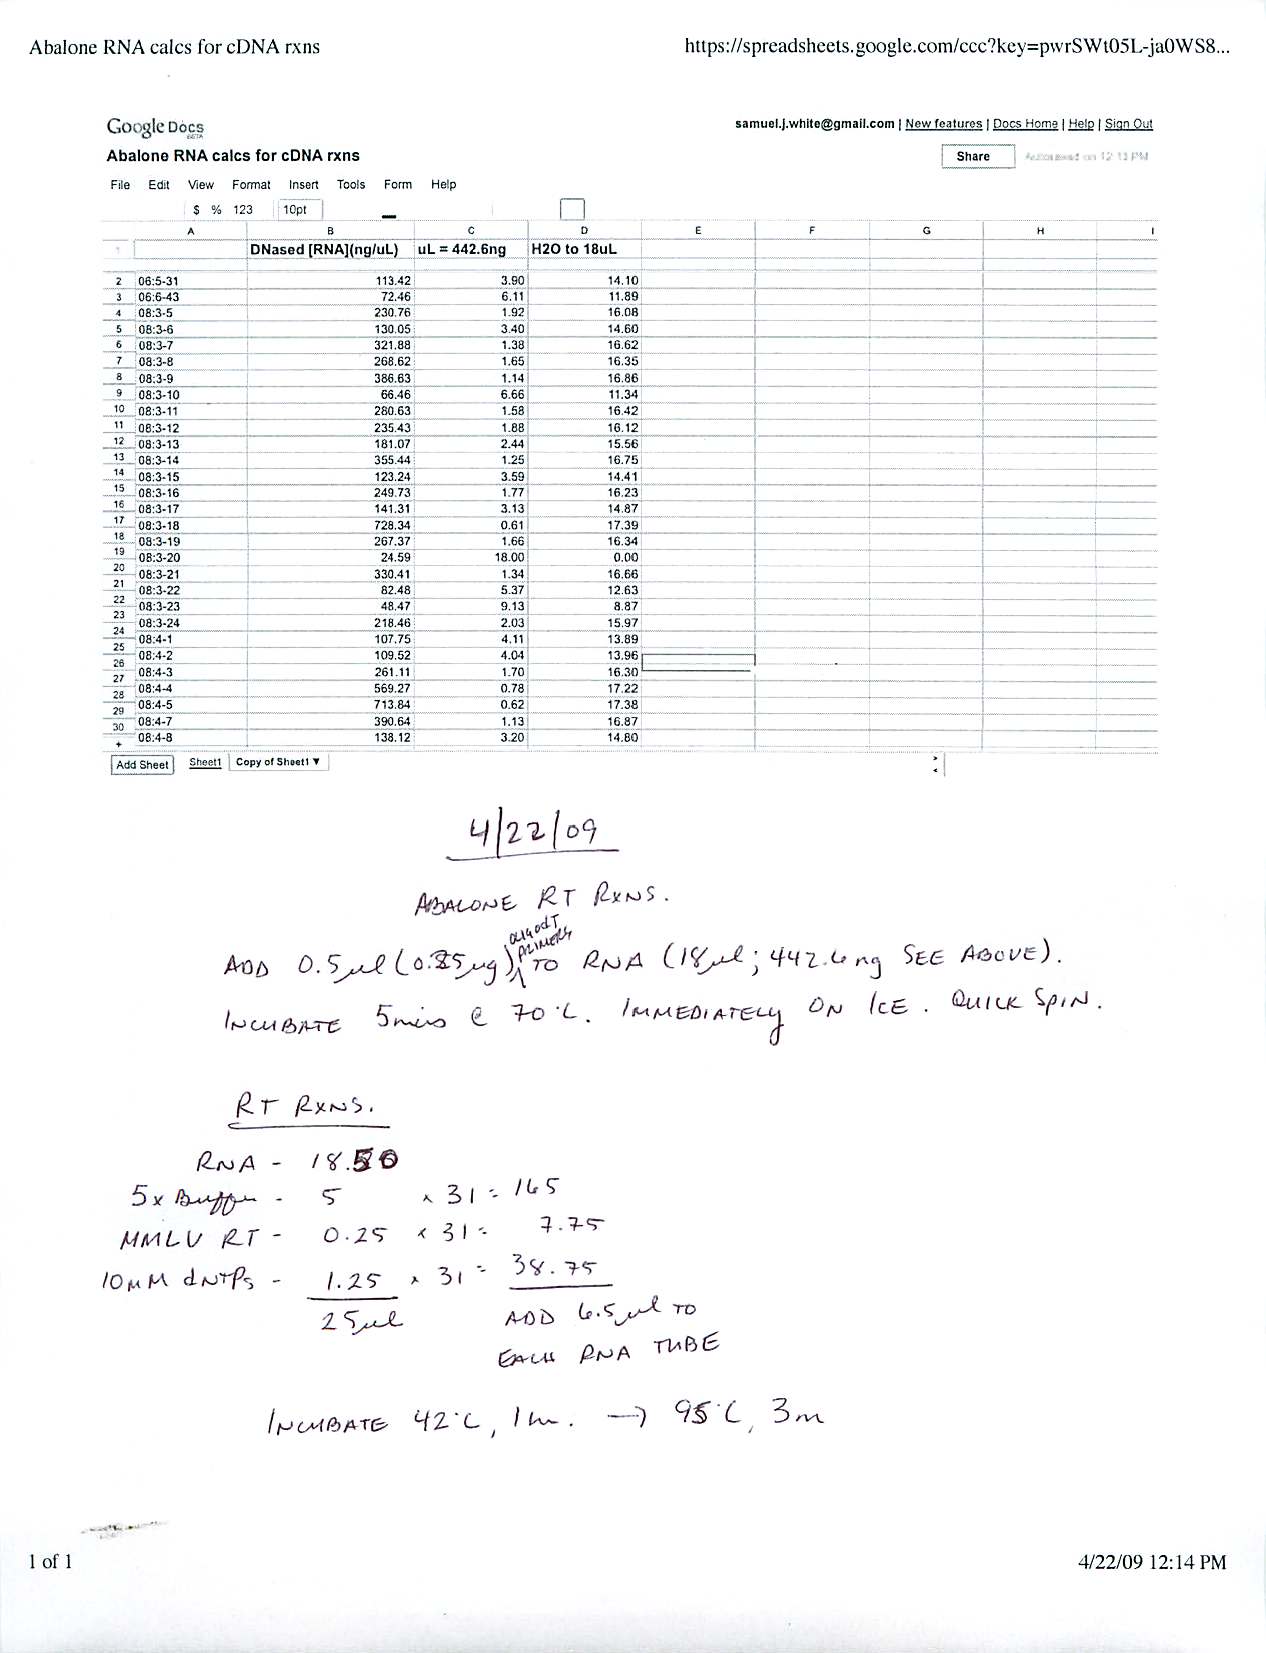 Abalone RNA calcs for cDNA rxns https://spreadsheets.google.com/ccc?key=pwrSWt05L-ja0WS8...
Google Docs
BETA
samuel.j.white@gmail.com | New features | Docs Home | Help | Sign Out
Abalone RNA calcs for cDNA rxns Share Autosaved on 12:13 PM
File Edit View Format Insert Tools Form Help
$ % 123 10pt
A B C D E F G H I
1 DNased [RNA](ng/uL) uL = 442.6ng H2O to 18uL
2 06:5-31 113.42 3.90 14.10
3 06:6-43 72.46 6.11 11.89
4 08:3-5 230.76 1.92 16.08
5 08:3-6 130.05 3.40 14.60
6 08:3-7 321.88 1.38 16.62
7 08:3-8 268.62 1.65 16.35
8 08:3-9 386.63 1.14 16.86
9 08:3-10 66.46 6.66 11.34
10 08:3-11 280.63 1.58 16.42
11 08:3-12 235.43 1.88 16.12
12 08:3-13 181.07 2.44 15.56
13 08:3-14 355.44 1.25 16.75
14 08:3-15 123.24 3.59 14.41
15 08:3-16 249.73 1.77 16.23
16 08:3-17 141.31 3.13 14.87
17 08:3-18 728.34 0.61 17.39
18 08:3-19 267.37 1.66 16.34
19 08:3-20 24.59 18.00 0.00
20 08:3-21 330.41 1.34 16.66
21 08:3-22 82.48 5.37 12.63
22 08:3-23 48.47 9.13 8.87
23 08:3-24 218.46 2.03 15.97
24 08:4-1 107.75 4.11 13.89
25 08:4-2 109.52 4.04 13.96
26 08:4-3 261.11 1.70 16.30
27 08:4-4 569.27 0.78 17.22
28 08:4-5 713.84 0.62 17.38
29 08:4-7 390.64 1.13 16.87
30 08:4-8 138.12 3.20 14.80
+
Add Sheet Sheet1 Copy of Sheet1 ▼
4/22/09
ABALONE RT RXNS.
OLIGO dT
PRIMERS
ADD 0.5µl (0.25µg) ∧ TO RNA (18µl; 442.6ng SEE ABOVE).
INCUBATE 5mins @ 70°C. IMMEDIATELY ON ICE. QUICK SPIN.
RT RXNS.
RNA - 18.50
5x Buffer - 5 x 31 = 165
MMLV RT - 0.25 x 31 = 7.75
10mM dNTPs - 1.25 x 31 = 38.75
25µl ADD 6.5µl TO
EACH RNA TUBE
INCUBATE 42°C, 1hr. → 95°C, 3m
1 of 1 4/22/09 12:14 PM